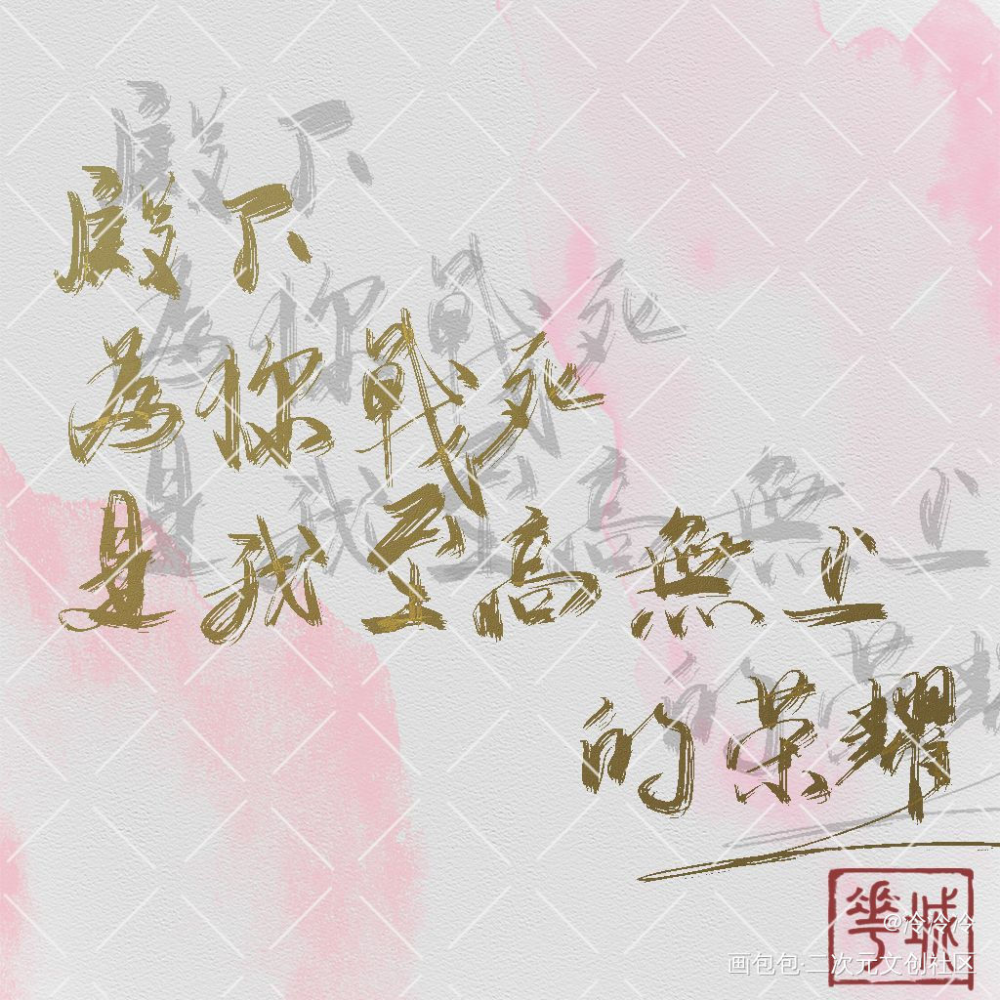 殿下
為你戰死
是我至高無上
的荣耀
華城
@冷冷冷
画包包·二次元文创社区